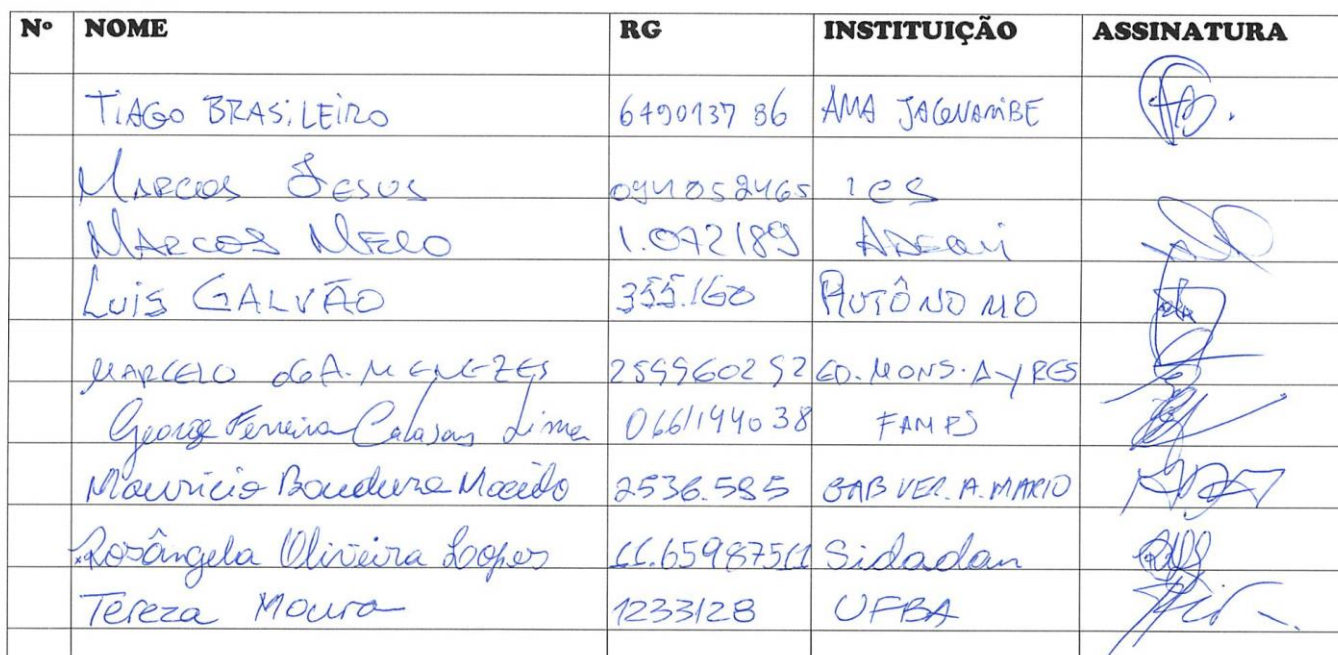 Nº NOME RG INSTITUIÇÃO ASSINATURA
TIAGO BRASILEIRO 649013786 AMA JAGUARIBE
MARCOS JESUS 0941052465 ICS
MARCOS MELO 1.072189
LUIS GALVÃO 355.160 AUTÔNOMO
MARCELO de A. MENEZES 2599602 92 ED. MONS. AYRES
George Ferreira Calasans Lima 0661194038 FAMFS
Mauricio Macêdo 2536.585 GAB VER. A. MARIO
Rosângela Oliveira Lopes 11.659875 Sidadan
Tereza Moura 1233128 UFBA